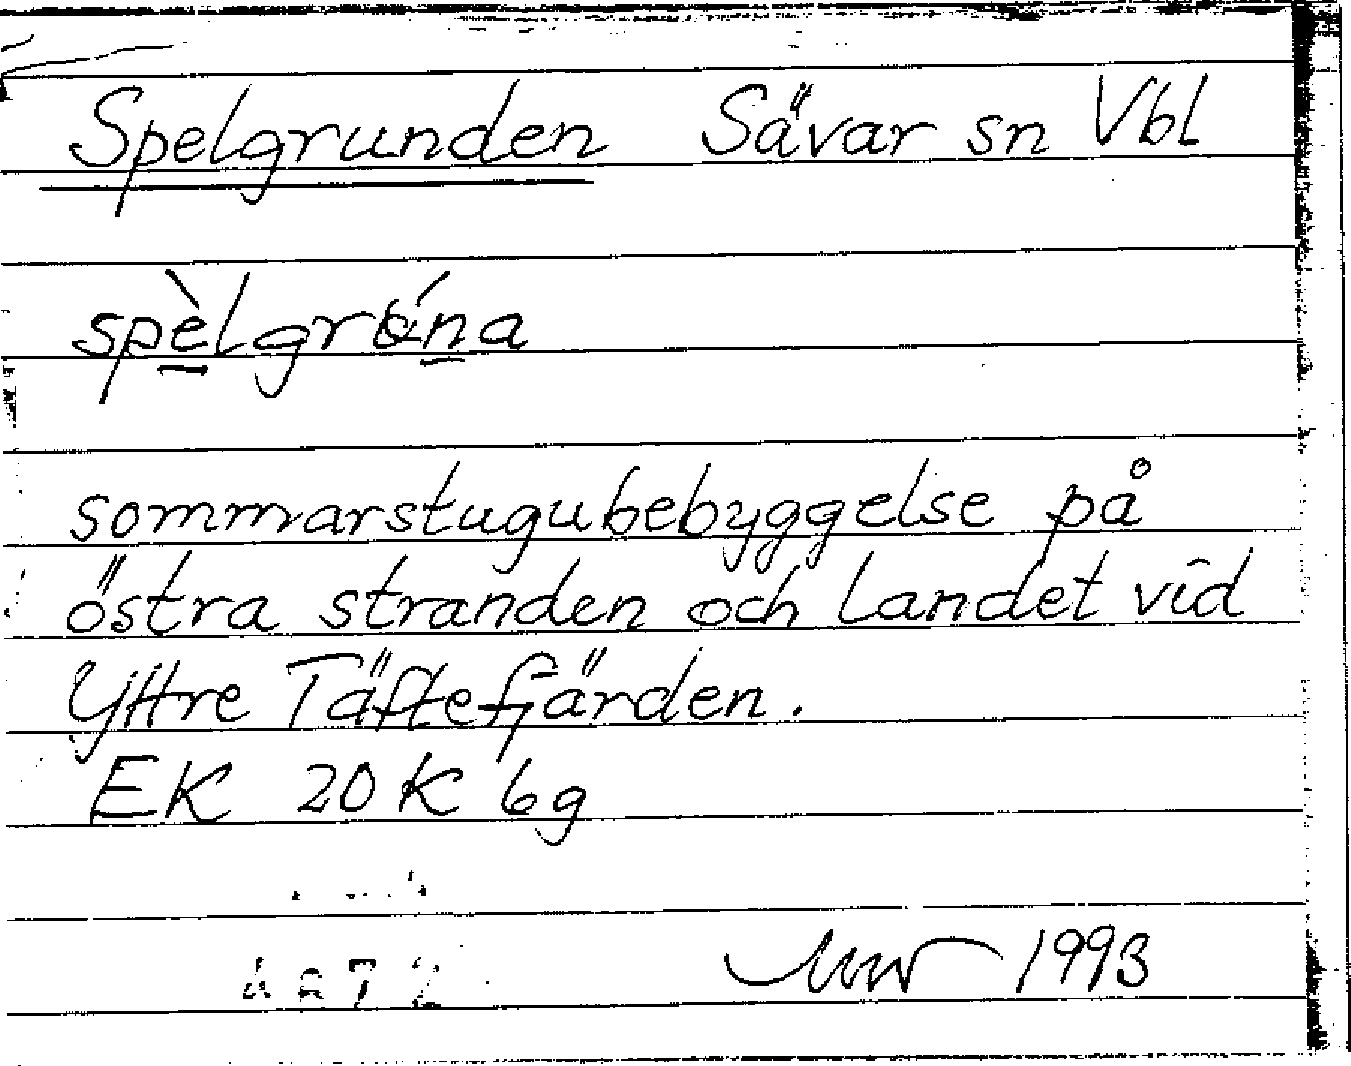 Spelgrunden Sävar sn Vbl
sommarstugubebyggelse på
östra stranden och landet vid
Yttre Täftefjärden.
EK 20 K 6g
1993